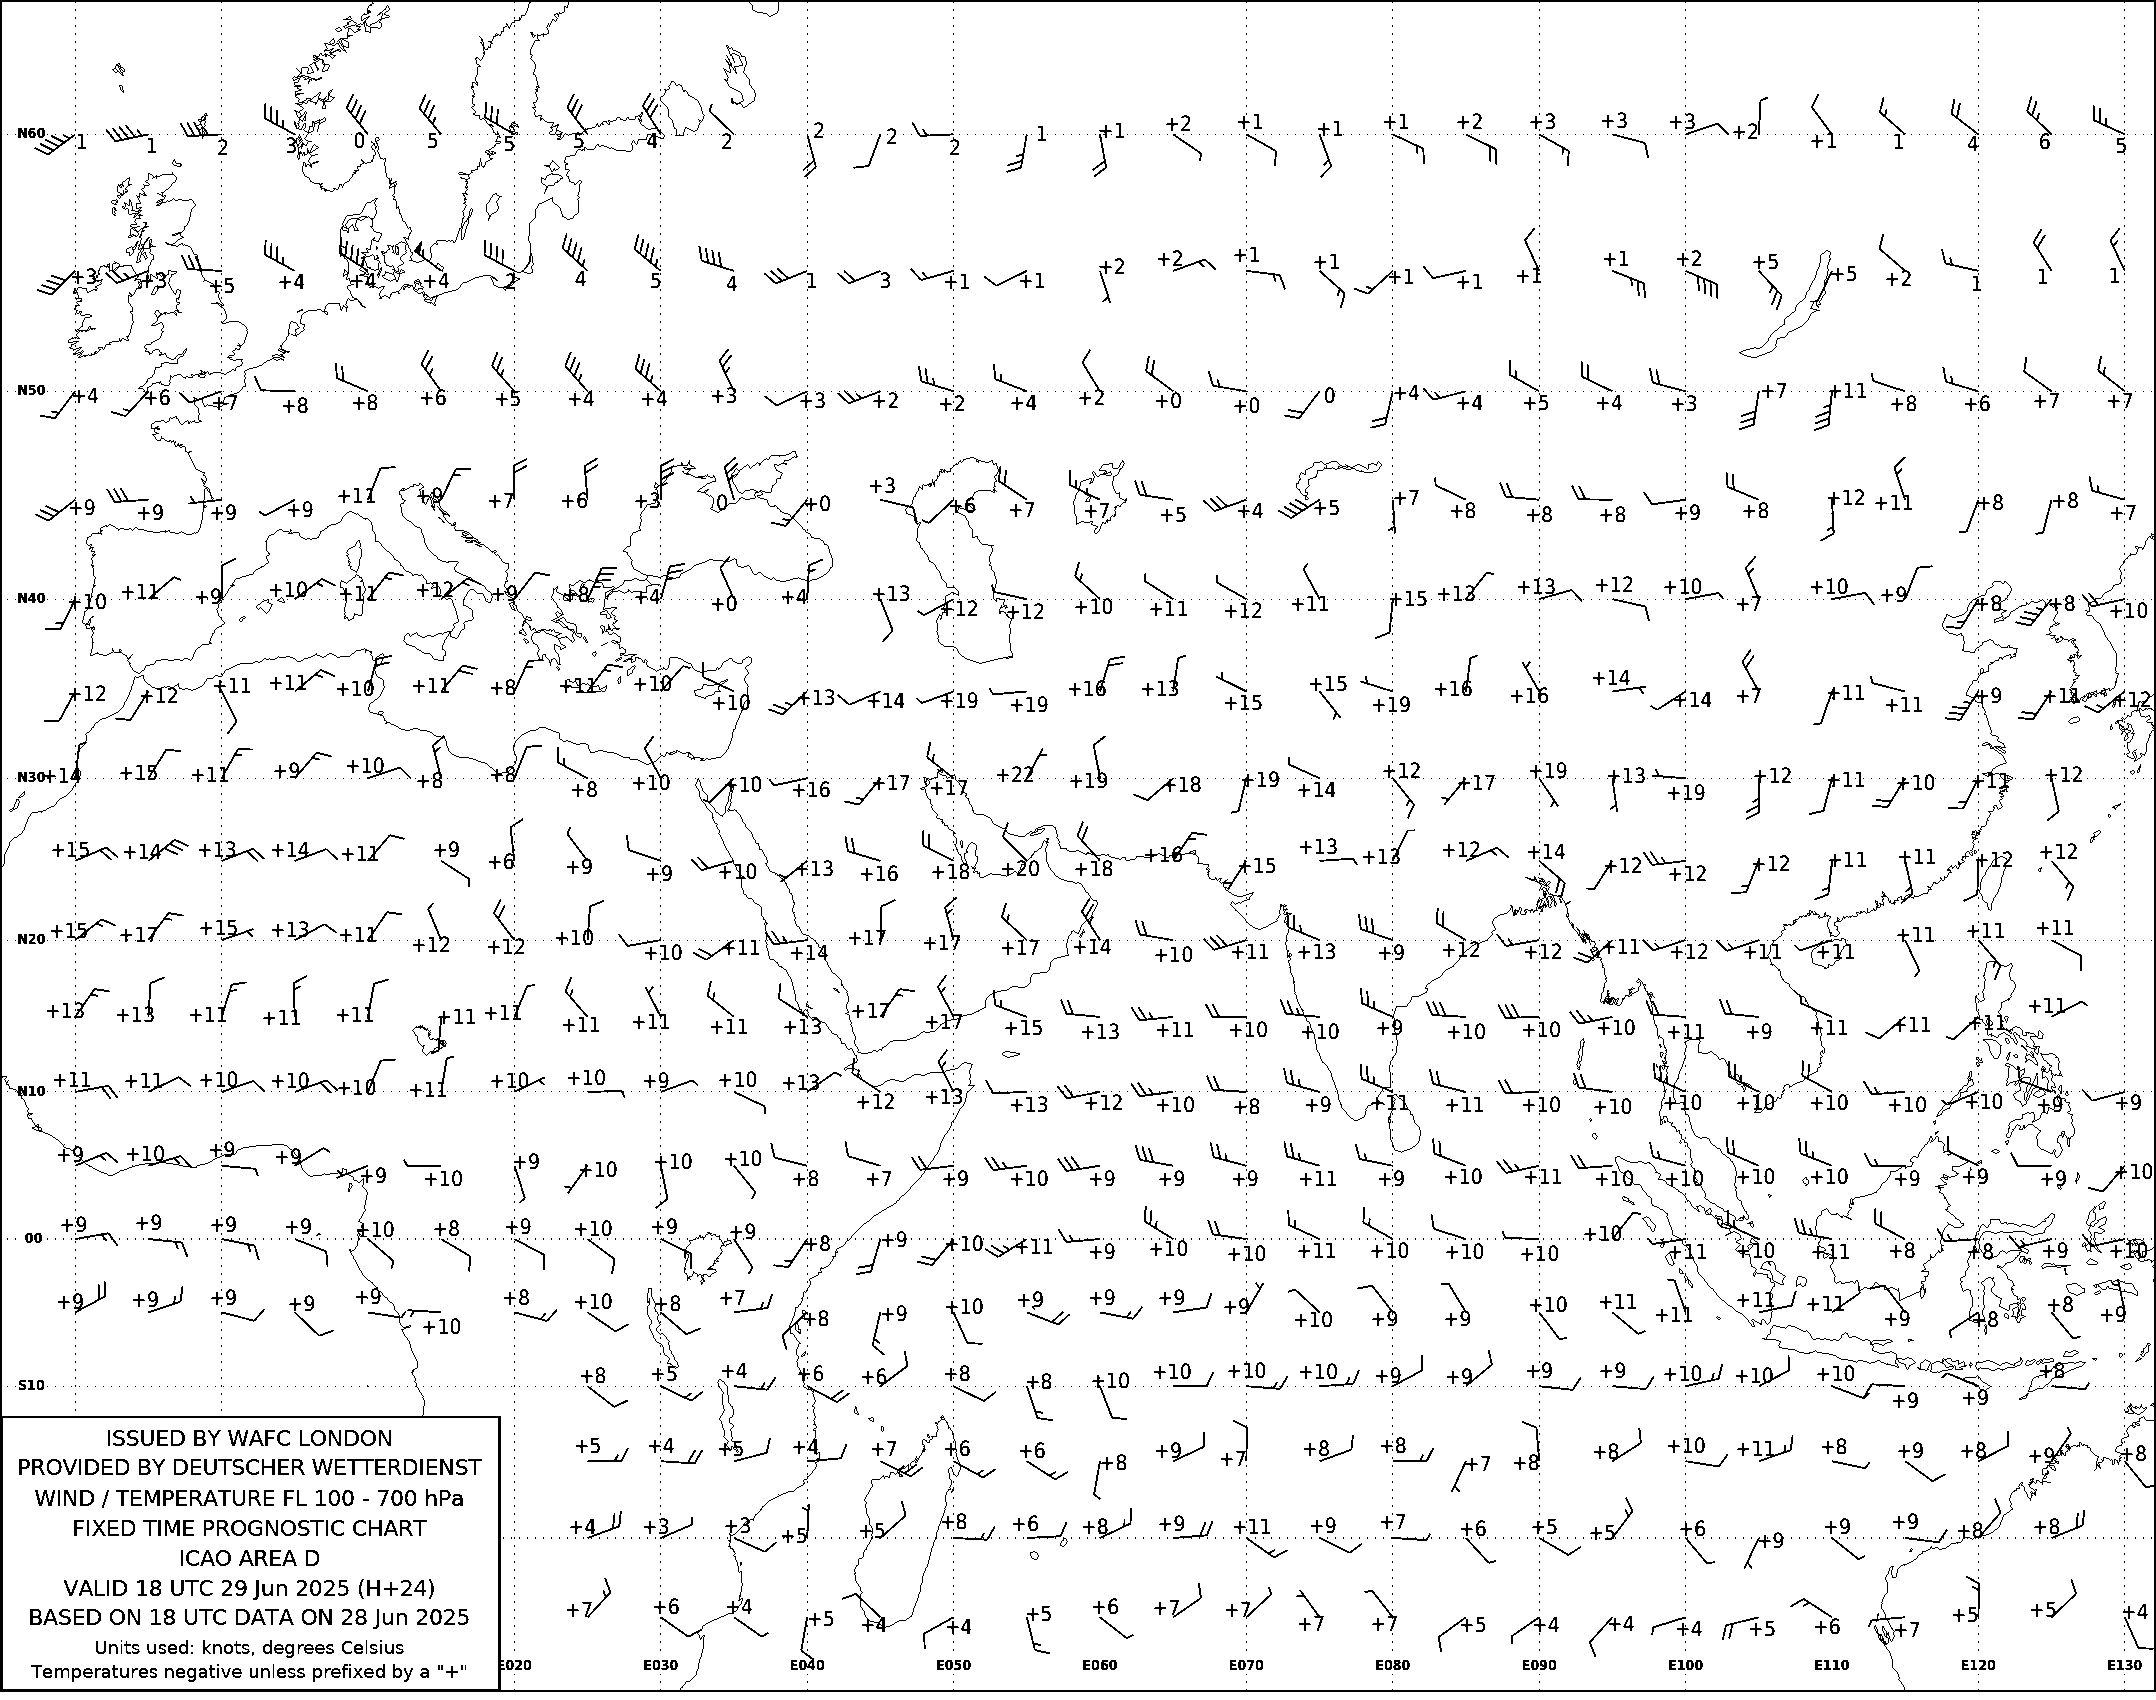 N60 1 1 2 3 0 5 5 5 4 2 2 2 2 1 +1 +2 +1 +1 +1 +2 +3 +3 +3 +2 +1 1 4 6 5
+3 +3 +5 +4 +4 +4 2 4 5 4 1 3 +1 +1 +2 +2 +1 +1 +1 +1 +1 +1 +2 +5 +5 +2 1 1 1
N50 +4 +6 +7 +8 +8 +6 +5 +4 +4 +3 +3 +2 +2 +4 +2 +0 +0 0 +4 +4 +5 +4 +3 +7 +11 +8 +6 +7 +7
+9 +9 +9 +9 +11 +9 +7 +6 +3 0 +0 +3 +6 +7 +7 +5 +4 +5 +7 +8 +8 +8 +9 +8 +12 +11 +8 +8 +7
N40 +10 +11 +9 +10 +11 +12 +9 +8 +4 +0 +4 +13 +12 +12 +10 +11 +12 +11 +15 +13 +13 +12 +10 +7 +10 +9 +8 +8 +10
+12 +12 +11 +11 +10 +11 +8 +11 +10 +10 +13 +14 +19 +19 +16 +13 +15 +15 +19 +16 +16 +14 +14 +7 +11 +11 +9 +12
N30 +14 +15 +11 +9 +10 +8 +8 +8 +10 +10 +16 +17 +17 +22 +19 +18 +19 +14 +12 +17 +19 +13 +19 +12 +11 +10 +11 +12
+15 +14 +13 +14 +11 +9 +6 +9 +9 +10 +13 +16 +18 +20 +18 +16 +15 +13 +13 +12 +14 +12 +12 +12 +11 +11 +12 +12
N20 +15 +17 +15 +13 +11 +12 +12 +10 +10 +11 +14 +17 +17 +17 +14 +10 +11 +13 +9 +12 +12 +11 +12 +11 +11 +11 +11 +11
+13 +13 +11 +11 +11 +11 +11 +11 +11 +11 +13 +17 +17 +15 +13 +11 +10 +10 +9 +10 +10 +10 +11 +9 +11 +11 +11 +11
N10 +11 +11 +10 +10 +10 +11 +10 +10 +9 +10 +13 +12 +13 +13 +12 +10 +8 +9 +11 +11 +10 +10 +10 +10 +10 +10 +10 +9 +9
+9 +10 +9 +9 +9 +10 +9 +10 +10 +10 +8 +7 +9 +10 +9 +9 +9 +11 +9 +10 +11 +10 +10 +10 +10 +9 +9 +9 +10
00 +9 +9 +9 +9 +10 +8 +9 +10 +9 +9 +8 +9 +10 +11 +9 +10 +10 +11 +10 +10 +10 +10 +11 +10 +11 +8 +8 +9 +10
+9 +9 +9 +9 +9 +10 +8 +10 +8 +7 +8 +9 +10 +9 +9 +9 +9 +10 +9 +9 +10 +11 +11 +11 +11 +9 +8 +8 +9
S10 +8 +5 +4 +6 +6 +8 +8 +10 +10 +10 +10 +9 +9 +9 +9 +10 +10 +10 +9 +9 +8
+5 +4 +5 +4 +7 +6 +6 +8 +9 +7 +8 +8 +7 +8 +8 +10 +11 +8 +9 +8 +9 +8
+4 +3 +3 +5 +5 +8 +6 +8 +9 +11 +9 +7 +6 +5 +5 +6 +9 +9 +9 +8 +8
+7 +6 +4 +5 +4 +4 +5 +6 +7 +7 +7 +7 +5 +4 +4 +4 +5 +6 +7 +5 +5 +4
ISSUED BY WAFC LONDON
PROVIDED BY DEUTSCHER WETTERDIENST
WIND / TEMPERATURE FL 100 - 700 hPa
FIXED TIME PROGNOSTIC CHART
ICAO AREA D
VALID 18 UTC 29 Jun 2025 (H+24)
BASED ON 18 UTC DATA ON 28 Jun 2025
Units used: knots, degrees Celsius
Temperatures negative unless prefixed by a "+"
E020 E030 E040 E050 E060 E070 E080 E090 E100 E110 E120 E130